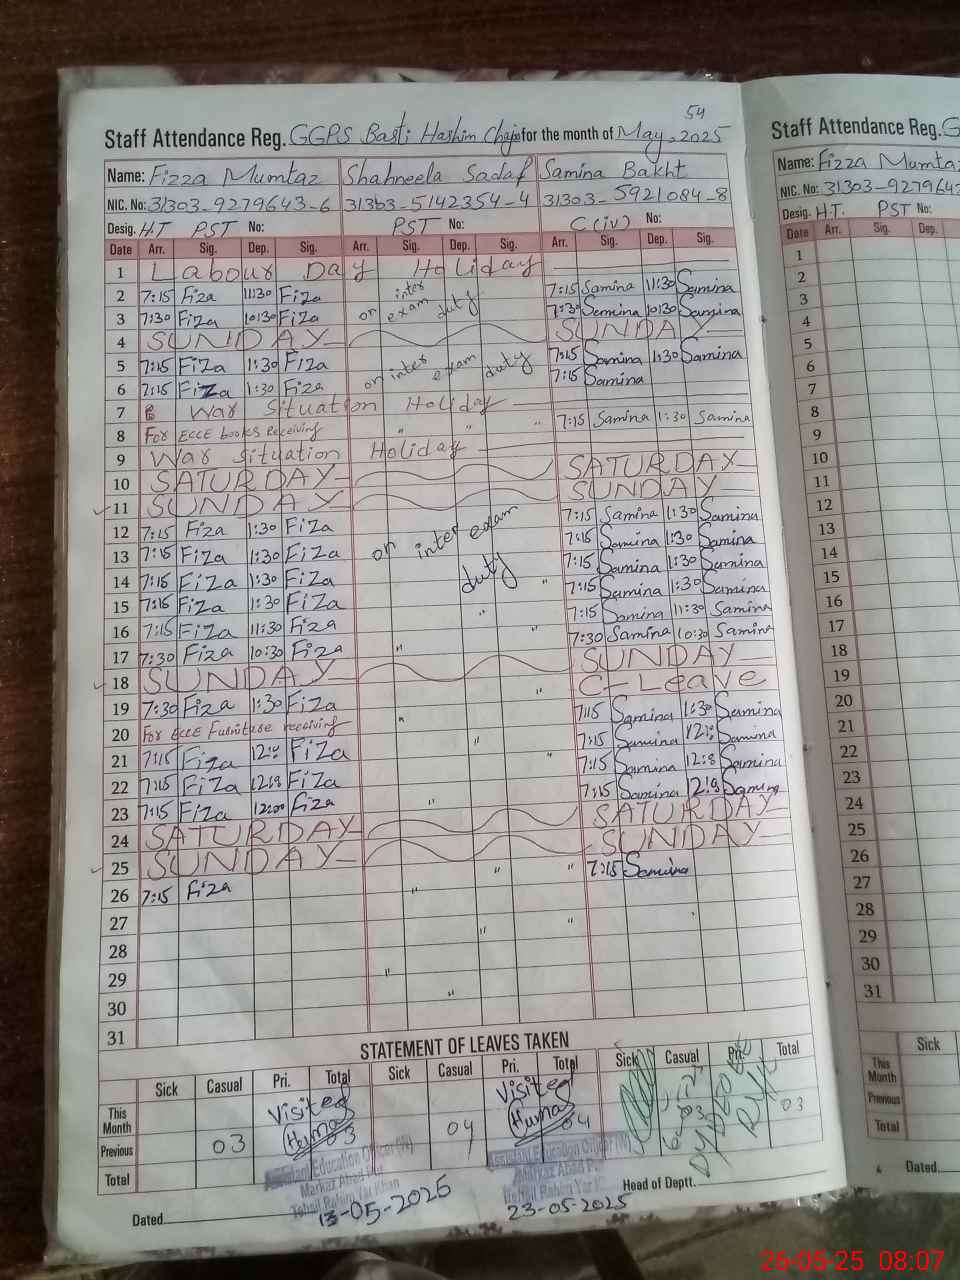 54
Staff Attendance Reg. GGPS Basti Hashim Chajo for the month of May, 2025
Name: Fizza Mumtaz Shahneela Sadaf Samina Bakht
NIC. No: 31303-9279643-6 31303-5142354-4 31303-5921084-8
Desig. HT PST No: PST No: C(iv) No:
Date Arr. Sig. Dep. Sig. Arr. Sig. Dep. Sig. Arr. Sig. Dep. Sig.
1 Labour Day Holiday
2 7:15 Fiza 11:30 Fiza on inter exam duty 7:15 Samina 11:30 Samina
3 7:30 Fiza 10:30 Fiza 7:30 Samina 10:30 Samina
4 SUNDAY SUNDAY
5 7:15 FiZa 1:30 FiZa on inter exam duty 7:15 Samina 1:30 Samina
6 7:15 FiZa 1:30 Fiza 7:15 Samina
7 War Situation Holiday
8 For ECCE books Receiving " " " 7:15 Samina 1:30 Samina
9 War situation Holiday
10 SATURDAY SATURDAY
11 SUNDAY SUNDAY
12 7:15 Fiza 1:30 FiZa on inter exam duty 7:15 Samina 1:30 Samina
13 7:15 FiZa 1:30 FiZa 7:15 Samina 1:30 Samina
14 7:15 FiZa 1:30 FiZa " 7:15 Samina 1:30 Samina
15 7:15 Fiza 1:30 FiZa " 7:15 Samina 1:30 Samina
16 7:15 FiZa 11:30 Fiza " 7:15 Samina 11:30 Samina
17 7:30 Fiza 10:30 Fiza " 7:30 Samina 10:30 Samina
18 SUNDAY SUNDAY
19 7:30 Fiza 1:30 FiZa " C-Leave
20 For ECCE Furniture receiving " 7:15 Samina 1:30 Samina
21 7:15 Fiza FiZa " 7:15 Samina Samina
22 7:15 FiZa FiZa " 7:15 Samina Samina
23 7:15 FiZa 12:00 Fiza " 7:15 Samina Samina
24 SATURDAY SATURDAY
25 SUNDAY SUNDAY
26 7:15 Fiza " " " 7:15 Samina
27 " "
28
29 "
30 "
31
STATEMENT OF LEAVES TAKEN
Sick Casual Pri. Total Sick Casual Pri. Total Sick Casual Pri. Total
This Month Visited Visited
Previous 03 Huma 03 04 Huma 04 03 03
Total Assistant Education Officer (W) Assistant Education Officer (W)
Markaz Abad Pur Markaz Abad Pur
Tehsil Rahim Yar Khan Tehsil Rahim Yar K
Head of Deptt.
Dated 13-05-2025 23-05-2025
Staff Attendance Reg. G
Name: Fizza Mumtaz
NIC. No: 31303-927964
Desig. H.T. PST No:
Date Arr. Sig. Dep.
1
2
3
4
5
6
7
8
9
10
11
12
13
14
15
16
17
18
19
20
21
22
23
24
25
26
27
28
29
30
31
Sick Casual
This Month
Previous
Total
Dated
26-05-25 08:07